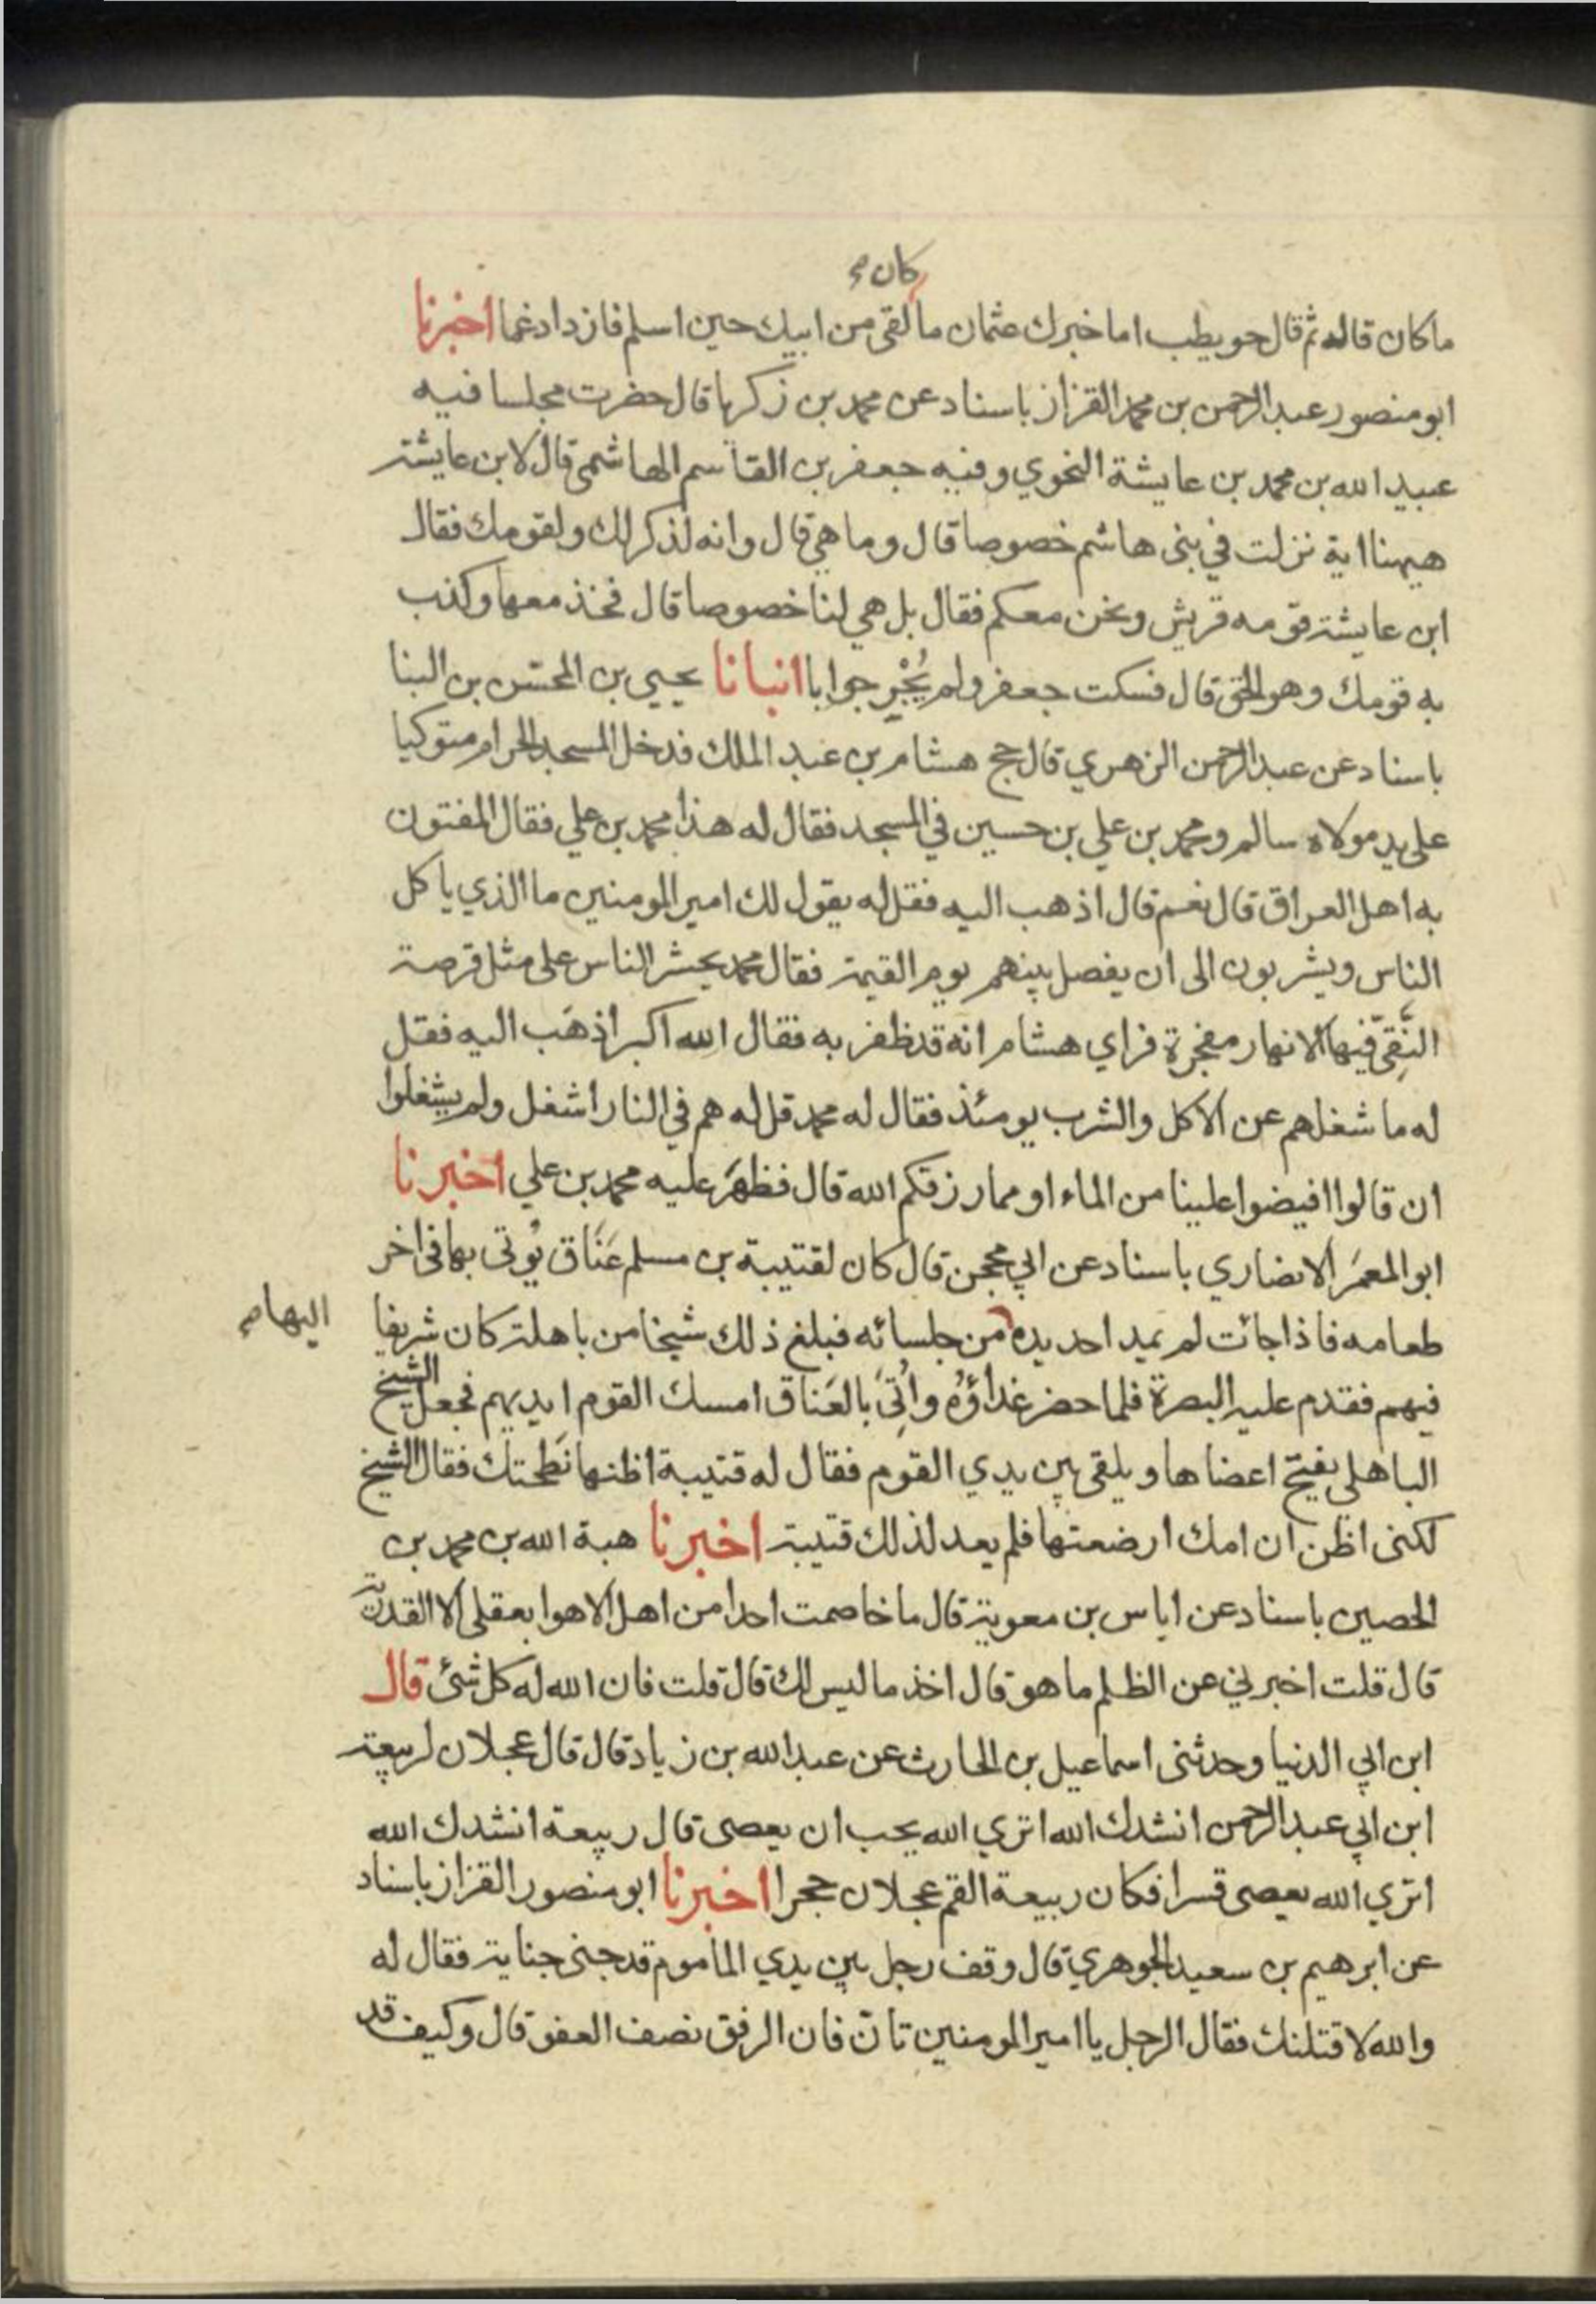 كان
ما كان قاله ثم قال حويطب اما خبرك عثمان ما لقى من ابيك حين اسلم فازداد غما اخبرنا
ابو منصور عبد الرحمن بن محمد القزاز باسناد عن محمد بن زكريا قال حضرت مجلسا فيه
عبيد الله بن محمد بن عايشة النحوي وفيه جعفر بن القاسم الهاشمى قال لابن عايشة
هيهنا اية نزلت في بنى هاشم خصوصا قال وما هي قال وانه لذكر لك ولقومك فقال
ابن عايشة قومه قريش ونحن معكم فقال بل هي لنا خصوصا قال فخذ معها وكذب
به قومك وهو الحق قال فسكت جعفر ولم يُحْرِ جوابا انبانا يحيى بن الحسن بن البنا
باسناد عن عبد الرحمن الزهري قال حج هشام بن عبد الملك فدخل المسجد الحرام متوكيا
على يد مولاه سالم ومحمد بن علي بن حسين في المسجد فقال له هذا محمد بن علي فقال المفتون
به اهل العراق قال نعم قال اذهب اليه فقل له يقول لك امير المومنين ما الذي ياكل
الناس ويشربون الى ان يفصل بينهم يوم القيمة فقال محمد يحشر الناس على مثل قرصة
النَّقِىّ فيها الانهار مفجرة فراي هشام انه قد ظفر به فقال الله اكبر اذهَب اليه فقل
له ما شغلهم عن الاكل والشرب يومئذ فقال له محمد قل له هم في النار اشغل ولم يشغلوا
ان قالوا افيضوا علينا من الماء او مما رزقكم الله قال فظهَر عليه محمد بن علي اخبرنا
ابو المعمَر الانصاري باسناد عن ابي محجن قال كان لقتيبة بن مسلم عَنَاق يُوتى بها فى اخر
طعامه فاذا جائت لم يمد احد يده من جلسائه فبلغ ذلك شيخا من باهلة كان شريفا
اليها
فيهم فقدم عليه البصرة فلما حضر غداؤُهُ واُتِىَ بالعَناق امسك القوم ايديهم فجعل الشيخ
الباهلي يفتح اعضاها ويلقى بين يدي القوم فقال له قتيبة اظنها نَطحتك فقال الشيخ
لكنى اظن ان امك ارضعتها فلم يعد لذلك قتيبة اخبرنا هبة الله بن محمد بن
الحصين باسناد عن اياس بن معوية قال ما خاصمت احدا من اهل الاهوا بعقلى الا القدرية
قال قلت اخبرني عن الظلم ما هو قال اخذ ما ليس لك قال قلت فان الله له كل شئ قال
ابن ابي الدنيا وحدثنى اسماعيل بن الحارث عن عبد الله بن زياد قال قال عجلان لربيعة
ابن ابي عبد الرحمن انشدك الله اتري الله يحب ان يعصى قال ربيعة انشدك الله
اتري الله يعصى قسرا فكان ربيعة القم عجلان حجرا اخبرنا ابو منصور القزاز باسناد
عن ابرهيم بن سعيد الجوهري قال وقف رجل بين يدي المامون قد جنى جناية فقال له
والله لاقتلنك فقال الرجل يا امير المومنين تانّ فان الرفق نصف العفو قال وكيف قد